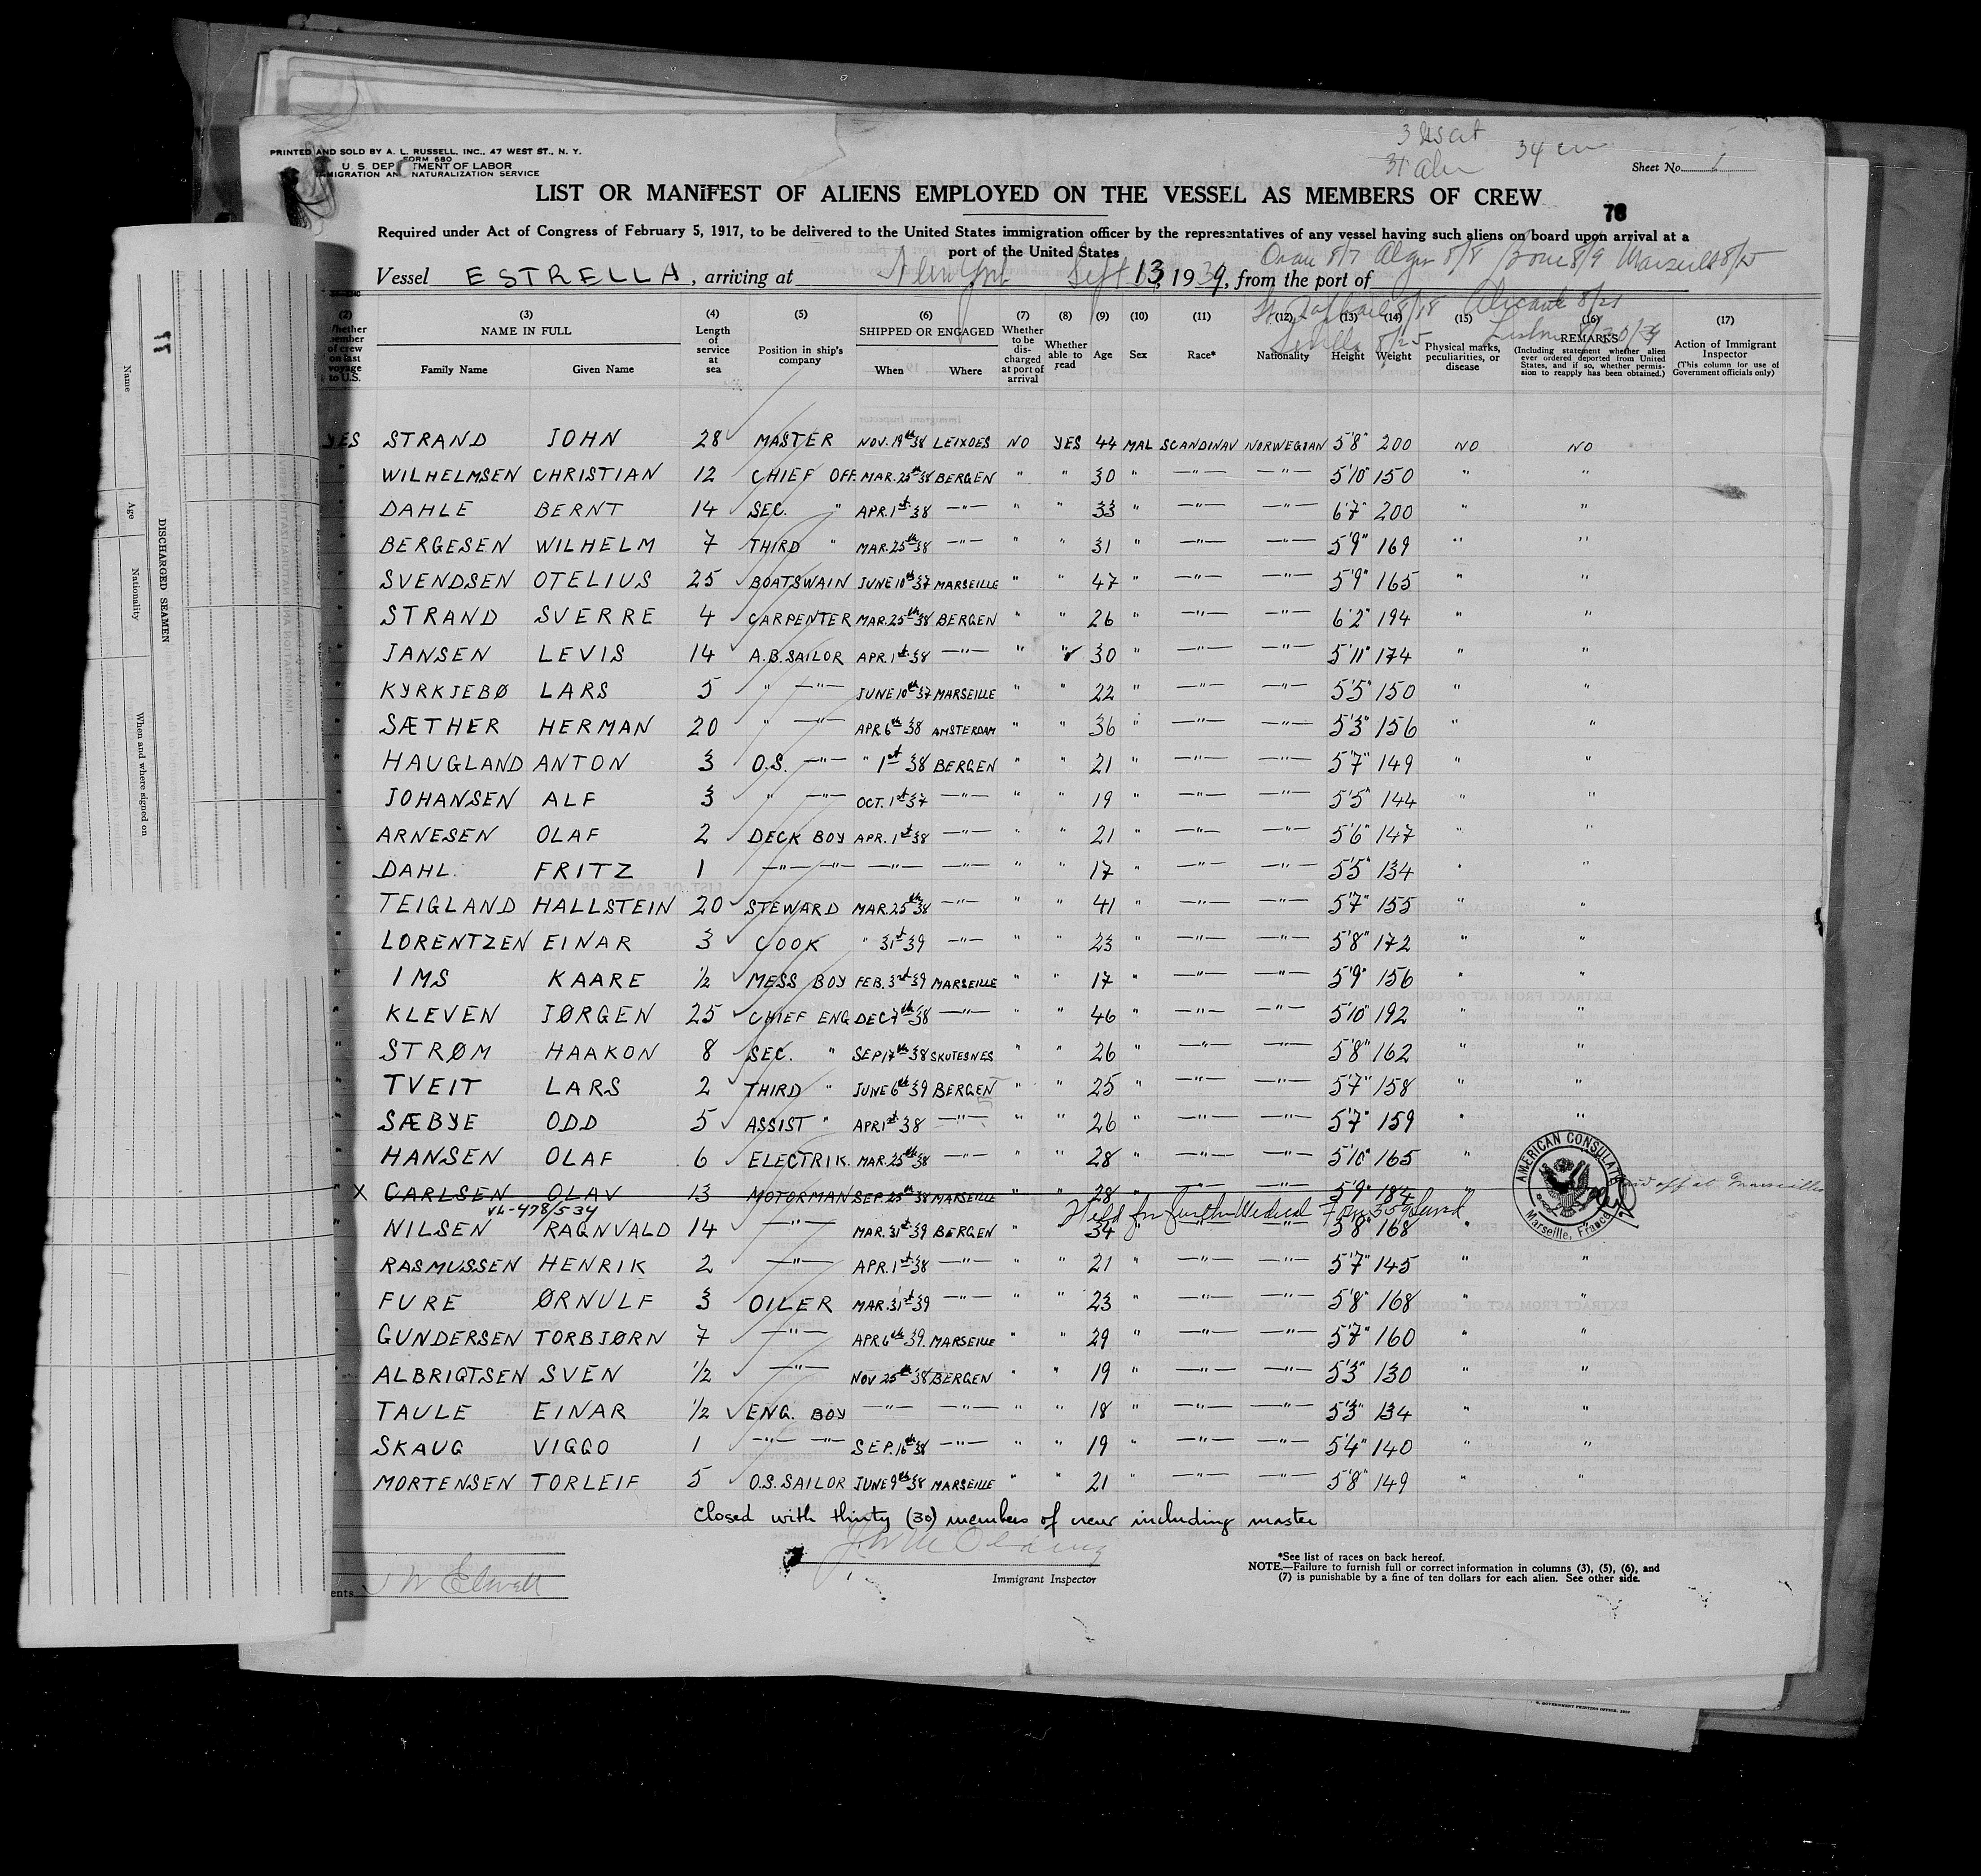 3 USCit
31 Alien 34 crew
PRINTED AND SOLD BY A. L. RUSSELL, INC., 47 WEST ST., N. Y.
FORM 680
U. S. DEP TMENT OF LABOR
MIGRATION AN NATURALIZATION SERVICE
Sheet No. 1
LIST OR MANIFEST OF ALIENS EMPLOYED ON THE VESSEL AS MEMBERS OF CREW
78
Required under Act of Congress of February 5, 1917, to be delivered to the United States immigration officer by the representatives of any vessel having such aliens on board upon arrival at a
port of the United States
Oran 8/7 Alger 8/8 Bone 8/9 Marseille 8/15
Vessel ESTRELLA, arriving at New York Sept 13, 1939, from the port of
St. Raphael 8/18 Alicante 8/21
Sevilla 8/25 Lisbon 8/30/39
(2) Whether member of crew on last voyage to U.S.
(3) NAME IN FULL Family Name Given Name
(4) Length of service at sea
(5) Position in ship's company
(6) SHIPPED OR ENGAGED When Where
(7) Whether to be discharged at port of arrival
(8) Whether able to read
(9) Age
(10) Sex
(11) Race*
(12) Nationality
(13) Height
(14) Weight
(15) Physical marks, peculiarities, or disease
(16) REMARKS (Including statement whether alien ever ordered deported from United States, and if so, whether permission to reapply has been obtained.)
(17) Action of Immigrant Inspector (This column for use of Government officials only)
YES STRAND JOHN 28 MASTER NOV. 19th 38 LEIXOES NO YES 44 MAL SCANDINAV NORWEGIAN 5'8" 200 NO NO
" WILHELMSEN CHRISTIAN 12 CHIEF OFF. MAR. 25th 38 BERGEN " " 30 " —"— —"— 5'10" 150 " "
" DAHLE BERNT 14 SEC. " APR. 1st 38 —"— " " 33 " —"— —"— 6'7" 200 " "
" BERGESEN WILHELM 7 THIRD " MAR. 25th 38 —"— " " 31 " —"— —"— 5'9" 169 " "
" SVENDSEN OTELIUS 25 BOATSWAIN JUNE 10th 37 MARSEILLE " " 47 " —"— —"— 5'9" 165 " "
" STRAND SVERRE 4 CARPENTER MAR. 25th 38 BERGEN " " 26 " —"— —"— 6'2" 194 " "
" JANSEN LEVIS 14 A.B. SAILOR APR. 1st 38 —"— " " 30 " —"— —"— 5'11" 174 " "
" KYRKJEBØ LARS 5 " —"— JUNE 10th 37 MARSEILLE " " 22 " —"— —"— 5'5" 150 " "
" SÆTHER HERMAN 20 " —"— APR. 6th 38 AMSTERDAM " " 36 " —"— —"— 5'3" 156 " "
" HAUGLAND ANTON 3 O.S. —"— " 1st 38 BERGEN " " 21 " —"— —"— 5'7" 149 " "
" JOHANSEN ALF 3 " —"— OCT. 1st 37 —"— " " 19 " —"— —"— 5'5" 144 " "
" ARNESEN OLAF 2 DECK BOY APR. 1st 38 —"— " " 21 " —"— —"— 5'6" 147 " "
" DAHL. FRITZ 1 —"— —"— —"— —"— " " 17 " —"— —"— 5'5" 134 " "
" TEIGLAND HALLSTEIN 20 STEWARD MAR. 25th 38 —"— " " 41 " —"— —"— 5'7" 155 " "
" LORENTZEN EINAR 3 COOK " 31st 39 —"— " " 23 " —"— —"— 5'8" 172 " "
" IMS KAARE 1/2 MESS BOY FEB. 3rd 39 MARSEILLE " " 17 " —"— —"— 5'9" 156 " "
" KLEVEN JØRGEN 25 CHIEF ENG DEC 7th 38 —"— " " 46 " —"— —"— 5'10" 192 " "
" STRØM HAAKON 8 SEC. " SEP 17th 38 SKUTESNES " " 26 " —"— —"— 5'8" 162 " "
" TVEIT LARS 2 THIRD " JUNE 6th 39 BERGEN " " 25 " —"— —"— 5'7" 158 " "
" SÆBYE ODD 5 ASSIST " APR 1st 38 —"— " " 26 " —"— —"— 5'7" 159 " "
" HANSEN OLAF 6 ELECTRIK. MAR. 25th 38 —"— " " 28 " —"— —"— 5'10" 165 "
" X CARLSEN OLAV 13 MOTORMAN SEP. 25th 38 MARSEILLE " " 28 " —"— —"— 5'9" 184 " paid off at Marseilles
AMERICAN CONSULATE Marseille, France
VL-478/534 Held for further Medical
" NILSEN RAGNVALD 14 —"— MAR. 31st 39 BERGEN " 34 —"— —"— 5'8" 168 "
" RASMUSSEN HENRIK 2 —"— APR. 1st 38 —"— " " 21 " —"— —"— 5'7" 145 " "
" FURE ØRNULF 3 OILER MAR. 31st 39 —"— " " 23 " —"— —"— 5'8" 168 " "
" GUNDERSEN TORBJØRN 7 —"— APR. 6th 39. MARSEILLE " " 29 " —"— —"— 5'7" 160 " "
" ALBRIGTSEN SVEN 1/2 —"— NOV 25th 38 BERGEN " " 19 " —"— —"— 5'3" 130 " "
" TAULE EINAR 1/2 ENG. BOY —"— —"— " " 18 " —"— —"— 5'3" 134 " "
" SKAUG VIGGO 1 —"— —"— SEP. 16th 38 —"— " " 19 " —"— —"— 5'4" 140 " "
" MORTENSEN TORLEIF 5 O.S. SAILOR JUNE 9th 38 MARSEILLE " " 21 " —"— —"— 5'8" 149 " "
Closed with thirty (30) members of crew including master
Immigrant Inspector
ents
*See list of races on back hereof.
NOTE.—Failure to furnish full or correct information in columns (3), (5), (6), and
(7) is punishable by a fine of ten dollars for each alien. See other side.
77
DISCHARGED SEAMEN
Name
Age
Nationality
When and where signed on
U. S. GOVERNMENT PRINTING OFFICE